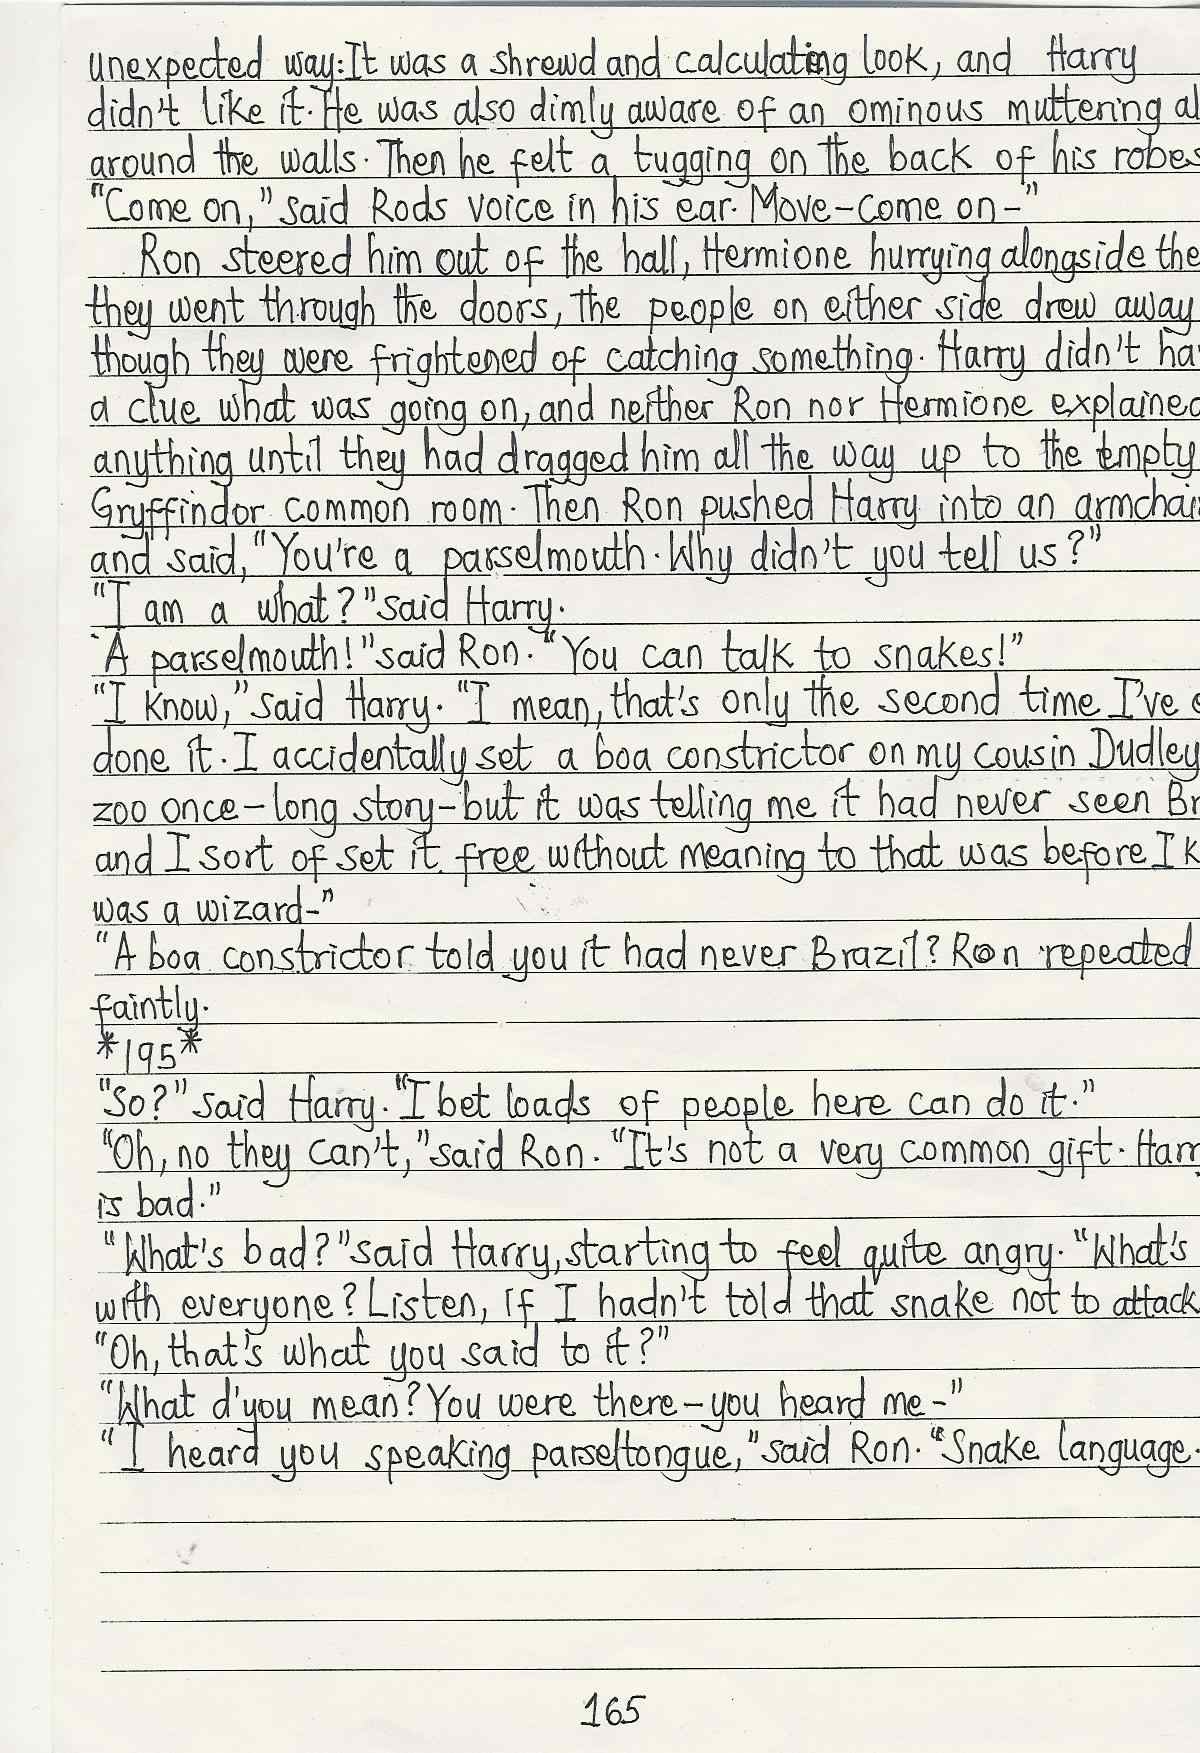 unexpected way: It was a shrewd and calculating look, and Harry
didn't like it. He was also dimly aware of an ominous muttering al
around the walls. Then he felt a tugging on the back of his robes
"Come on," said Rods voice in his ear. Move-come on-"
Ron steered him out of the hall, Hermione hurrying alongside the
they went through the doors, the people on either side drew away
though they were frightened of catching something. Harry didn't ha
a clue what was going on, and neither Ron nor Hermione explained
anything until they had dragged him all the way up to the empty
Gryffindor common room. Then Ron pushed Harry into an armchair
and said, "You're a parselmouth. Why didn't you tell us?"
"I am a what?" said Harry.
"A parselmouth!" said Ron. "You can talk to snakes!"
"I know," said Harry. "I mean, that's only the second time I've
done it. I accidentally set a boa constrictor on my cousin Dudley
zoo once-long story-but it was telling me it had never seen Br
and I sort of set it free without meaning to that was before I k
was a wizard-"
"A boa constrictor told you it had never Brazil? Ron repeated
faintly.
*195*
"So?" said Harry. "I bet loads of people here can do it."
"Oh, no they can't," said Ron. "It's not a very common gift. Harr
is bad."
"What's bad?" said Harry, starting to feel quite angry. "What's
with everyone? Listen, If I hadn't told that snake not to attack
"Oh, that's what you said to it?"
"What d'you mean? You were there-you heard me-"
"I heard you speaking parseltongue," said Ron. "Snake language.
165